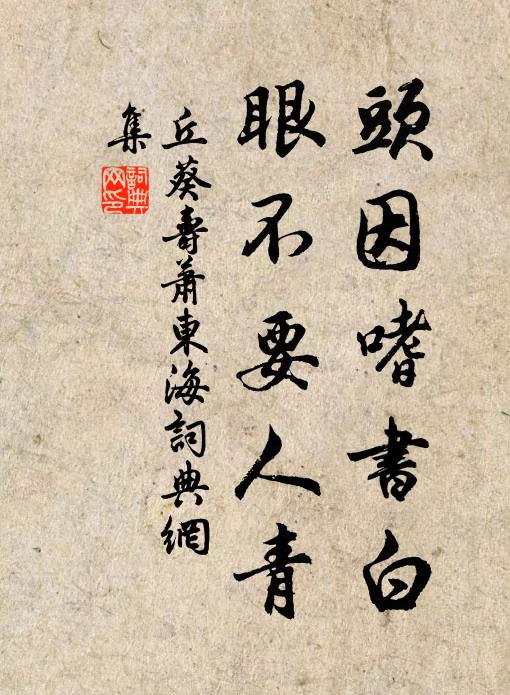 頭因嗜書白
眼不要人青
丘葵壽蕭東海詞典網
集
詞典
网印